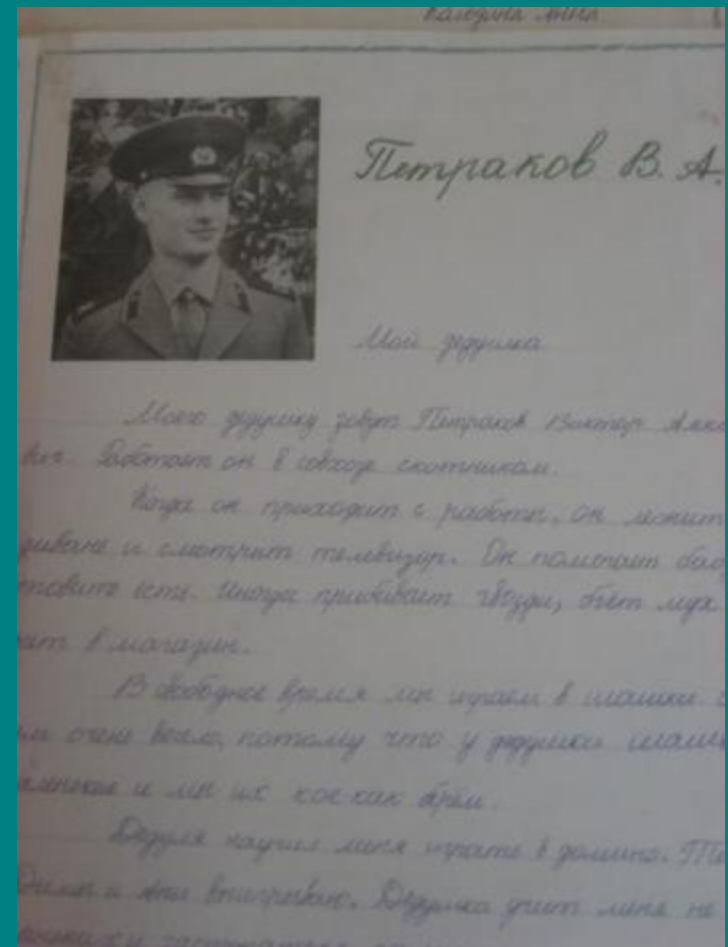 Калёдина Анна
Петраков В. А.
Мой дедушка
Моего дедушку зовут Петраков Виктор Алекс
вич. Работает он в совхозе скотником.
Когда он приходит с работы, он лежит
диване и смотрит телевизор. Он помогает баб
готовить есть. Иногда прибивает гвозди, бьёт мух
в магазин.
В свободное время мы играем в шашки с
очень весело, потому что у дедушки шашк
маленькие и мы их кое-как брём.
Дедуля научил меня играть в домино. Те
Димы и Ани выигрываю. Дедушка учит меня не